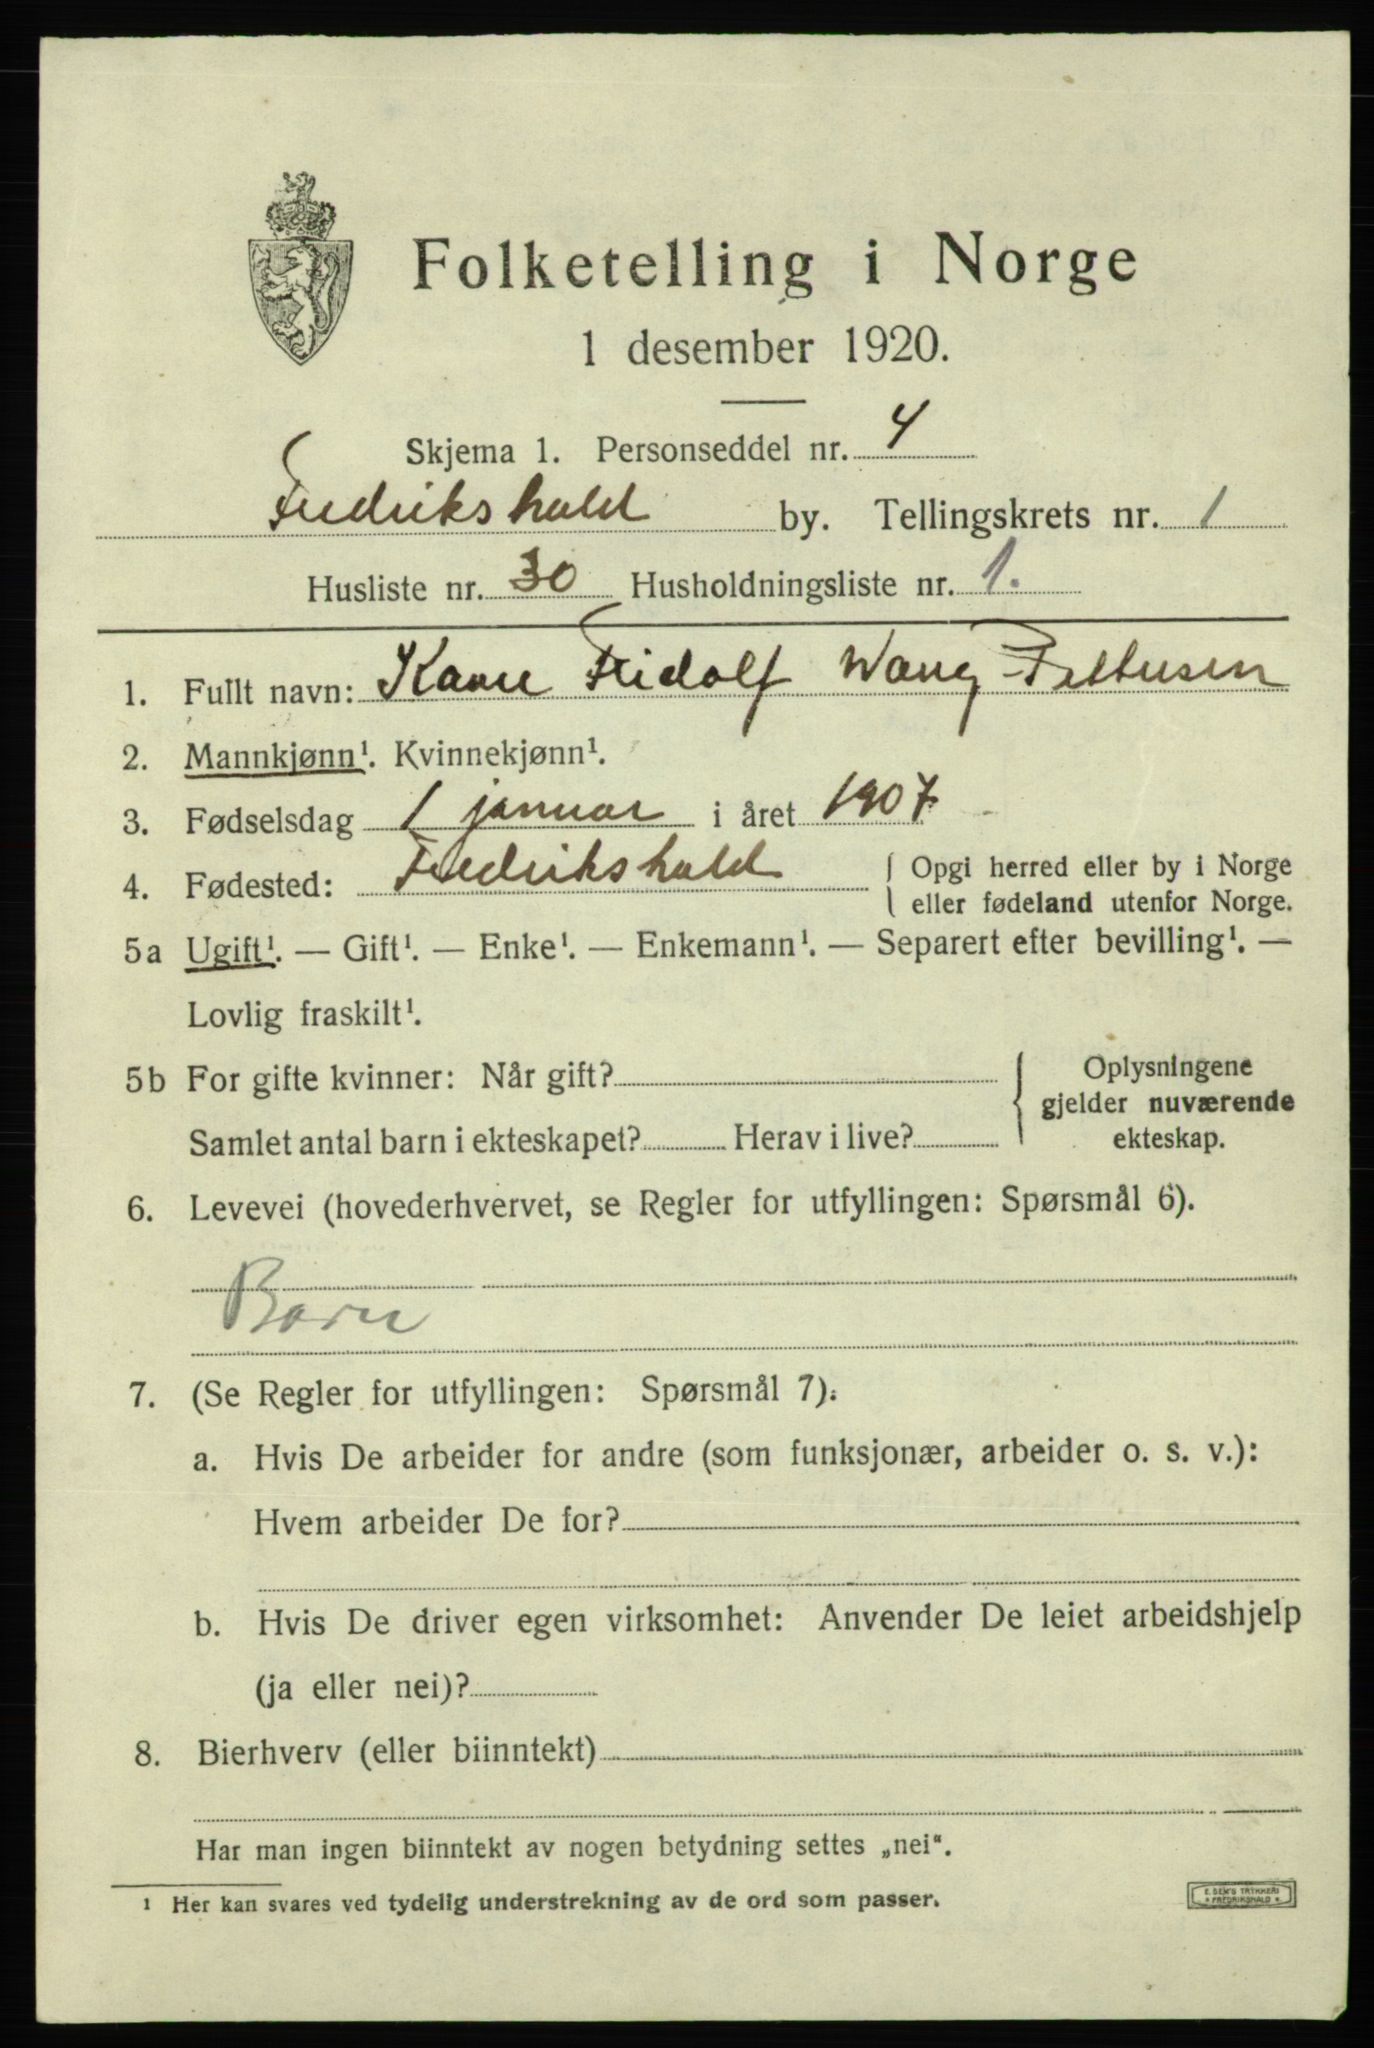 Folketelling i Norge
1 desember 1920.
Skjema 1. Personseddel nr. 4
Fredrikshald by. Tellingskrets nr. 1
Husliste nr. 30 Husholdningsliste nr. 1.
1. Fullt navn: Kaare Fridolf Wang
2. Mannkjønn¹. Kvinnekjønn¹.
3. Fødselsdag 1 januar i året 1907
4. Fødested: Fredrikshald { Opgi herred eller by i Norge
eller fødeland utenfor Norge.
5a Ugift¹. — Gift¹. — Enke¹. — Enkemann¹. — Separert efter bevilling¹. —
Lovlig fraskilt¹.
5b For gifte kvinner: Når gift? { Oplysningene
gjelder nuværende
Samlet antal barn i ekteskapet? Herav i live? ekteskap.
6. Levevei (hovederhvervet, se Regler for utfyllingen: Spørsmål 6).
Barn
7. (Se Regler for utfyllingen: Spørsmål 7).
a. Hvis De arbeider for andre (som funksjonær, arbeider o. s. v.):
Hvem arbeider De for?
b. Hvis De driver egen virksomhet: Anvender De leiet arbeidshjelp
(ja eller nei)?
8. Bierhverv (eller biinntekt)
Har man ingen biinntekt av nogen betydning settes „nei“.
¹ Her kan svares ved tydelig understrekning av de ord som passer.
E. SEM'S TRYKKERI
FREDRIKSHALD